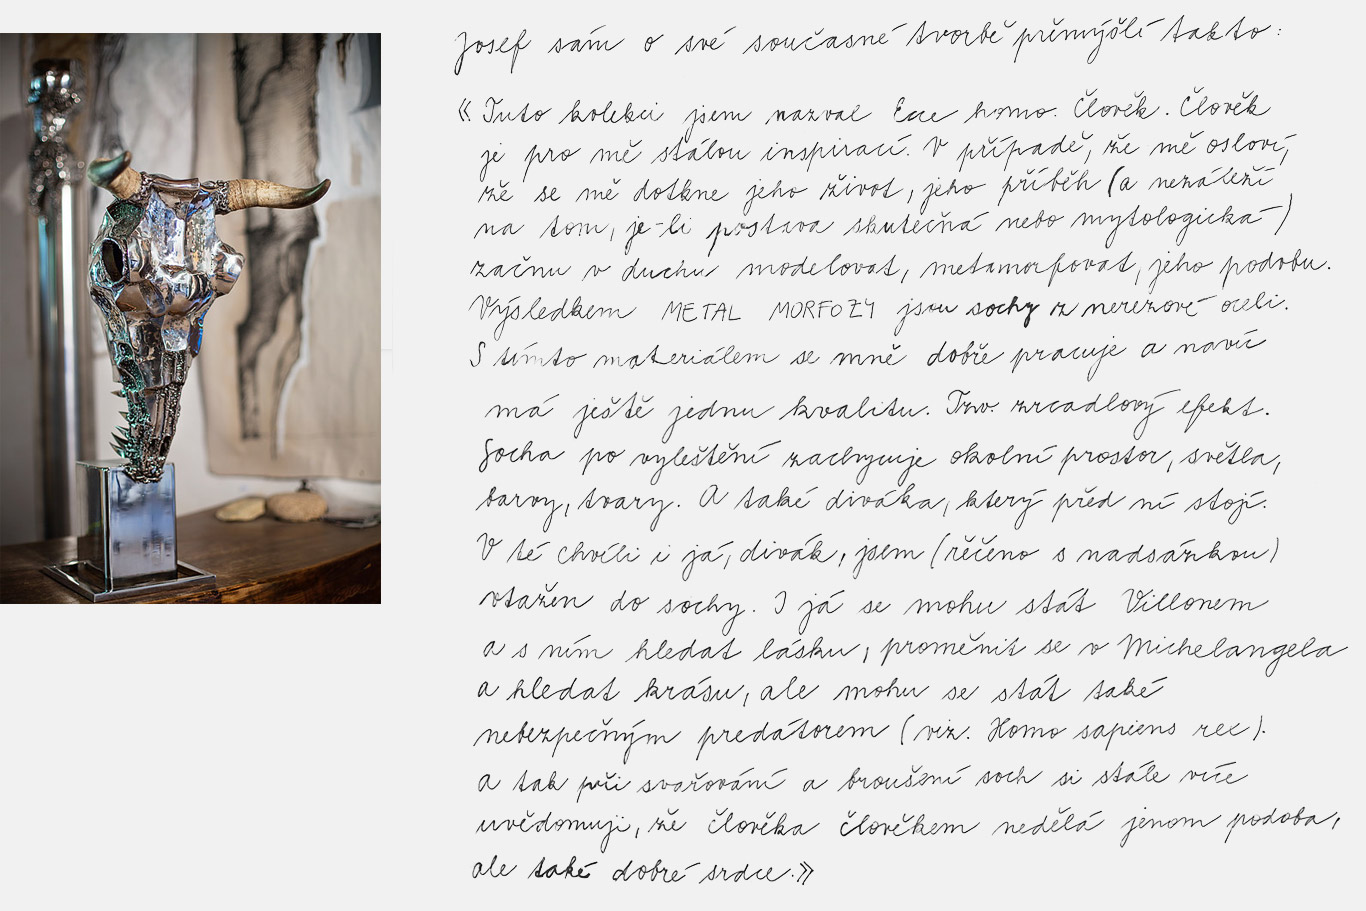 Josef sám o své současné tvorbě přemýšlí takto:
«Tuto kolekci jsem nazval Ecce homo. Člověk. Člověk
je pro mě stálou inspirací. V případě, že mě osloví,
že se mě dotkne jeho život, jeho příběh (a nezáleží
na tom, je-li postava skutečná nebo mytologická)
začnu v duchu modelovat, metamorfovat, jeho podobu.
Výsledkem METAL MORFOZY jsou sochy z nerezové oceli.
S tímto materiálem se mně dobře pracuje a navíc
má ještě jednu kvalitu. Tzv. zrcadlový efekt.
Socha po vyleštění zachycuje okolní prostor, světla,
barvy, tvary. A také diváka, který před ní stojí.
V té chvíli i já, divák, jsem (řečeno s nadsázkou)
vtažen do sochy. I já se mohu stát Villonem
a s ním hledat lásku, proměnit se v Michelangela
a hledat krásu, ale mohu se stát také
nebezpečným predátorem (viz. Homo sapiens rex).
A tak při svařování a broušení soch si stále více
uvědomuji, že člověka člověkem nedělá jenom podoba,
ale také dobré srdce.»